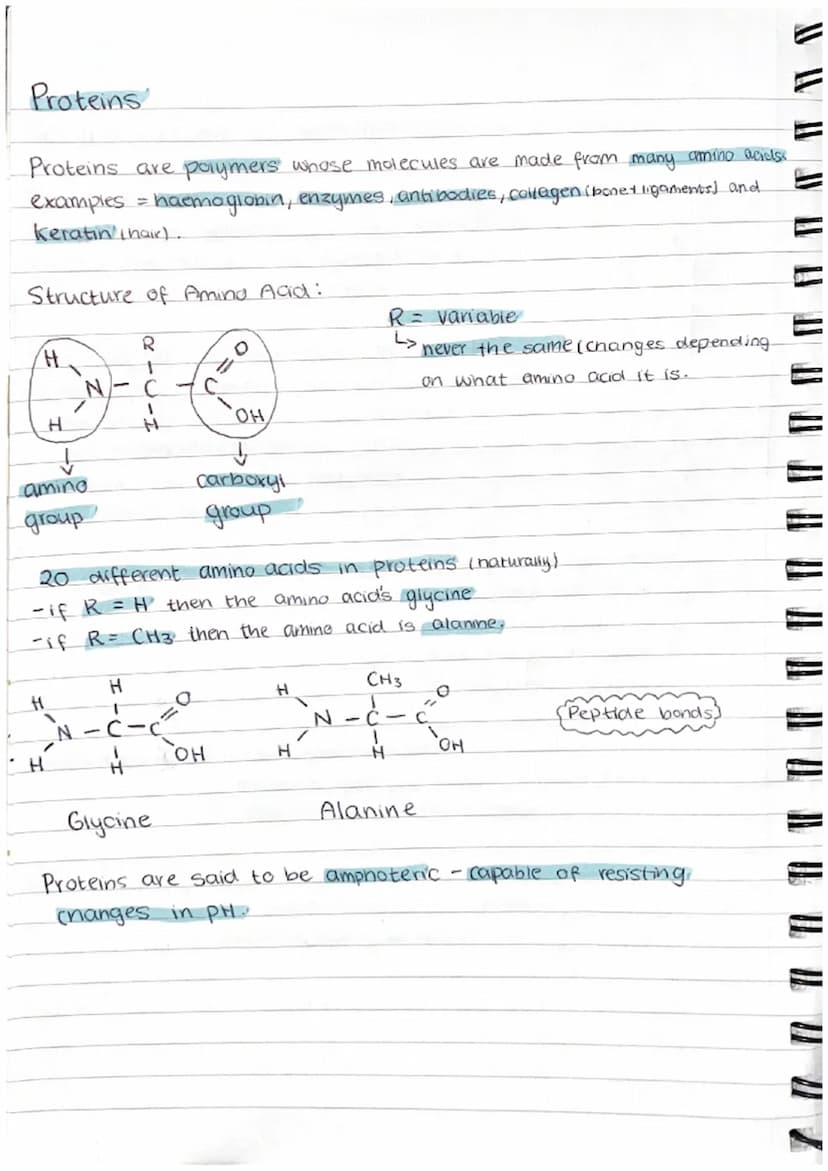 Proteins
Proteins are polymers whose molecules are made from many amino acids.
examples = haemoglobin, enzymes, antibodies, collagen (bone + ligaments) and
keratin (hair).
Structure of Amino Acid:
R = variable
↳ never the same (changes depending
on what amino acid it is.
H R O
N - C - C
H H OH
amino
group
carboxyl
group
20 different amino acids in proteins (naturally)
- if R = H then the amino acid's glycine
- if R = CH3 then the amino acid is alanine.
H H O
N - C - C
H H OH
H CH3 O
N - C - C
H H OH
Peptide bonds
Glycine
Alanine
Proteins are said to be amphoteric - capable of resisting
changes in pH.